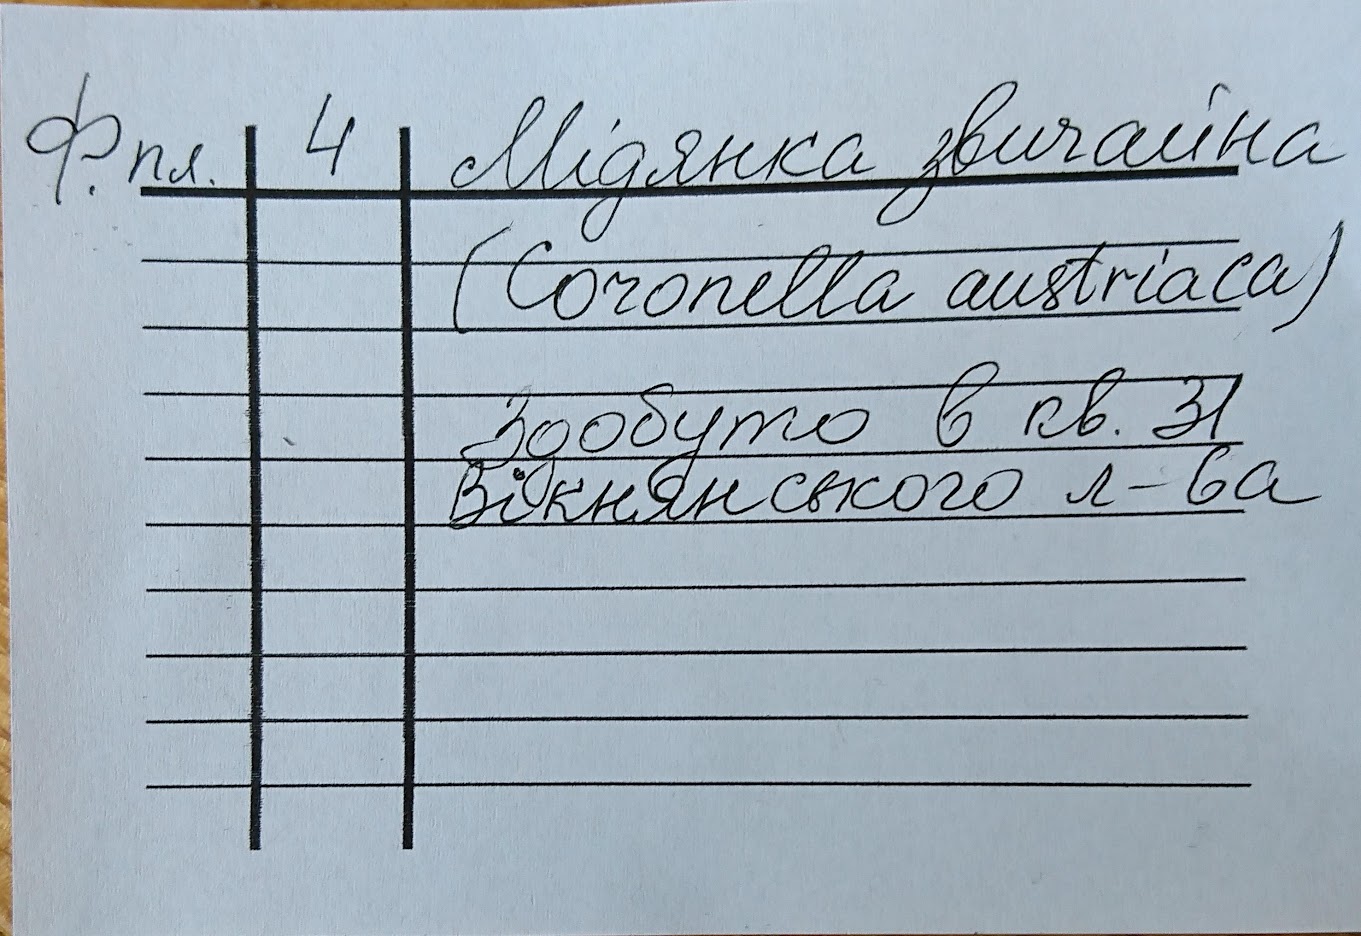 Ф. пл. 4 Мідянка звичайна
(Coronella austriaca)
Здобуто в кв. 31
Вікнянського л-ва